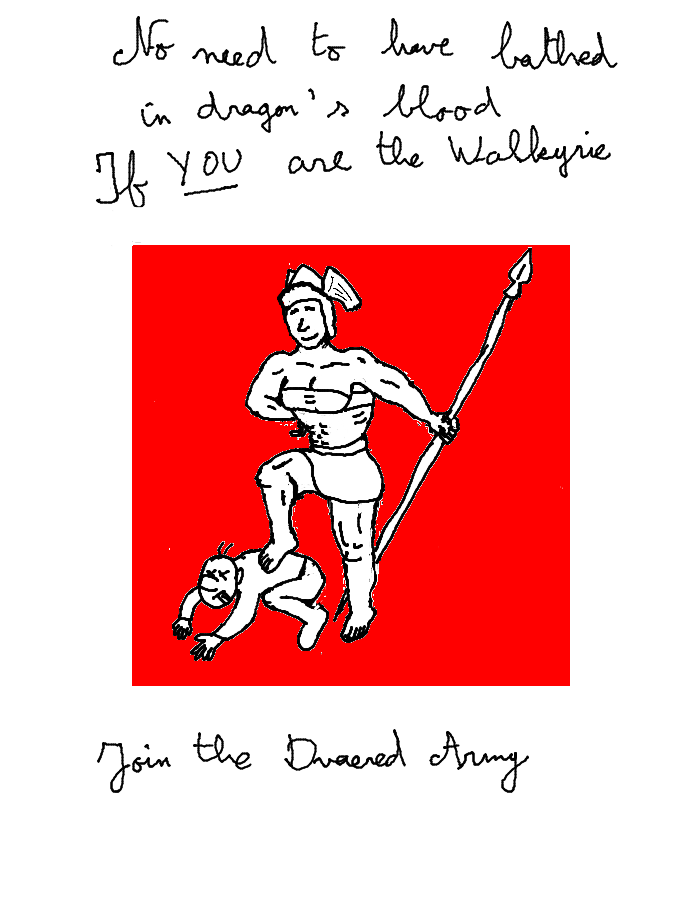 No need to have bathed
in dragon's blood
If YOU are the Walkyrie
Join the Dvaered Army